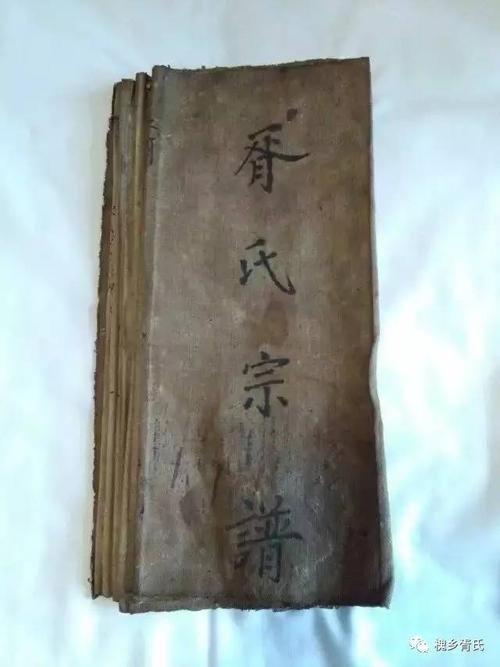 胥氏宗譜
槐乡胥氏